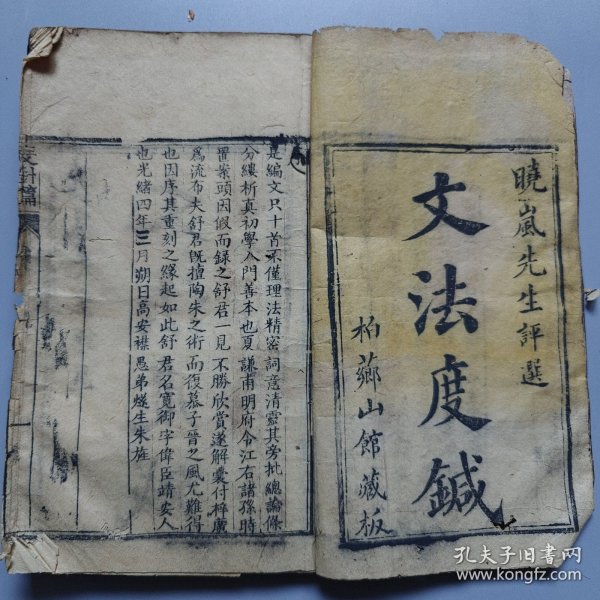 曉嵐先生評選
文法度鍼
柏薌山館藏板
是編文只十首不僅理法精密詞意清靈其旁批總論條
分縷析真初學入門善本也夏謙甫明府令江右諸孫時
置案頭因假而錄之舒君一見不勝欣賞遂解囊付梓廣
為流布夫舒君既擅陶朱之術而復慕子晉之風尤難得
也因序其重刻之緣起如此舒君名寬御字偉臣靖安人
也光緒四年三月朔日高安襟愚弟燧生朱旌
度針篇
孔夫子旧书网
www.kongfz.com